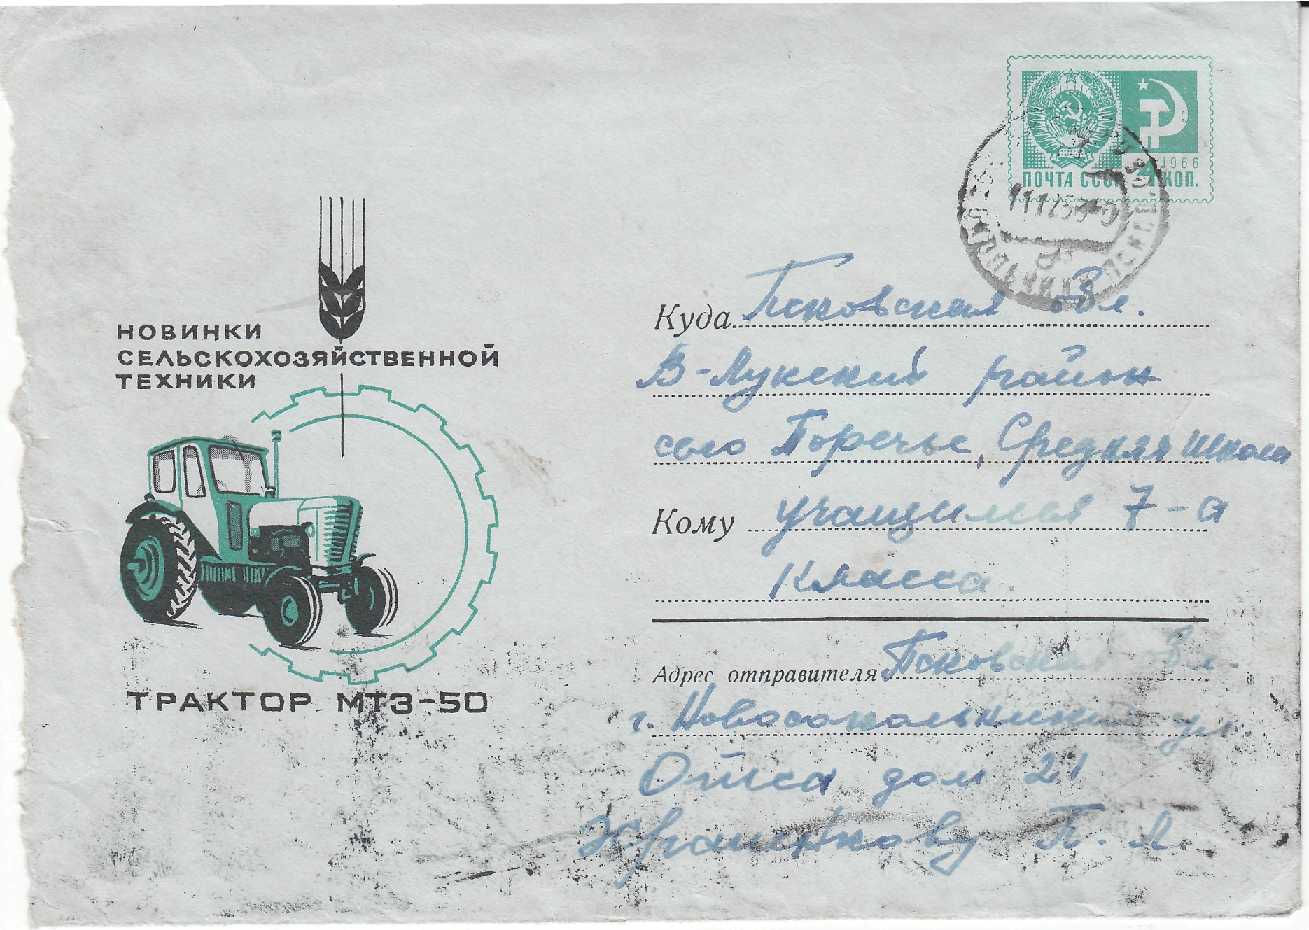 1966
ПОЧТА СССР 4 КОП.
НОВИНКИ
СЕЛЬСКОХОЗЯЙСТВЕННОЙ
ТЕХНИКИ
ТРАКТОР МТЗ-50
Куда Псковская обл.
В-Лукский район
село Поречье, Средняя школа
Кому учащимся 7-а
класса.
Адрес отправителя Псковская обл.
г. Новосокольники ул.
дом 21
П. Л.